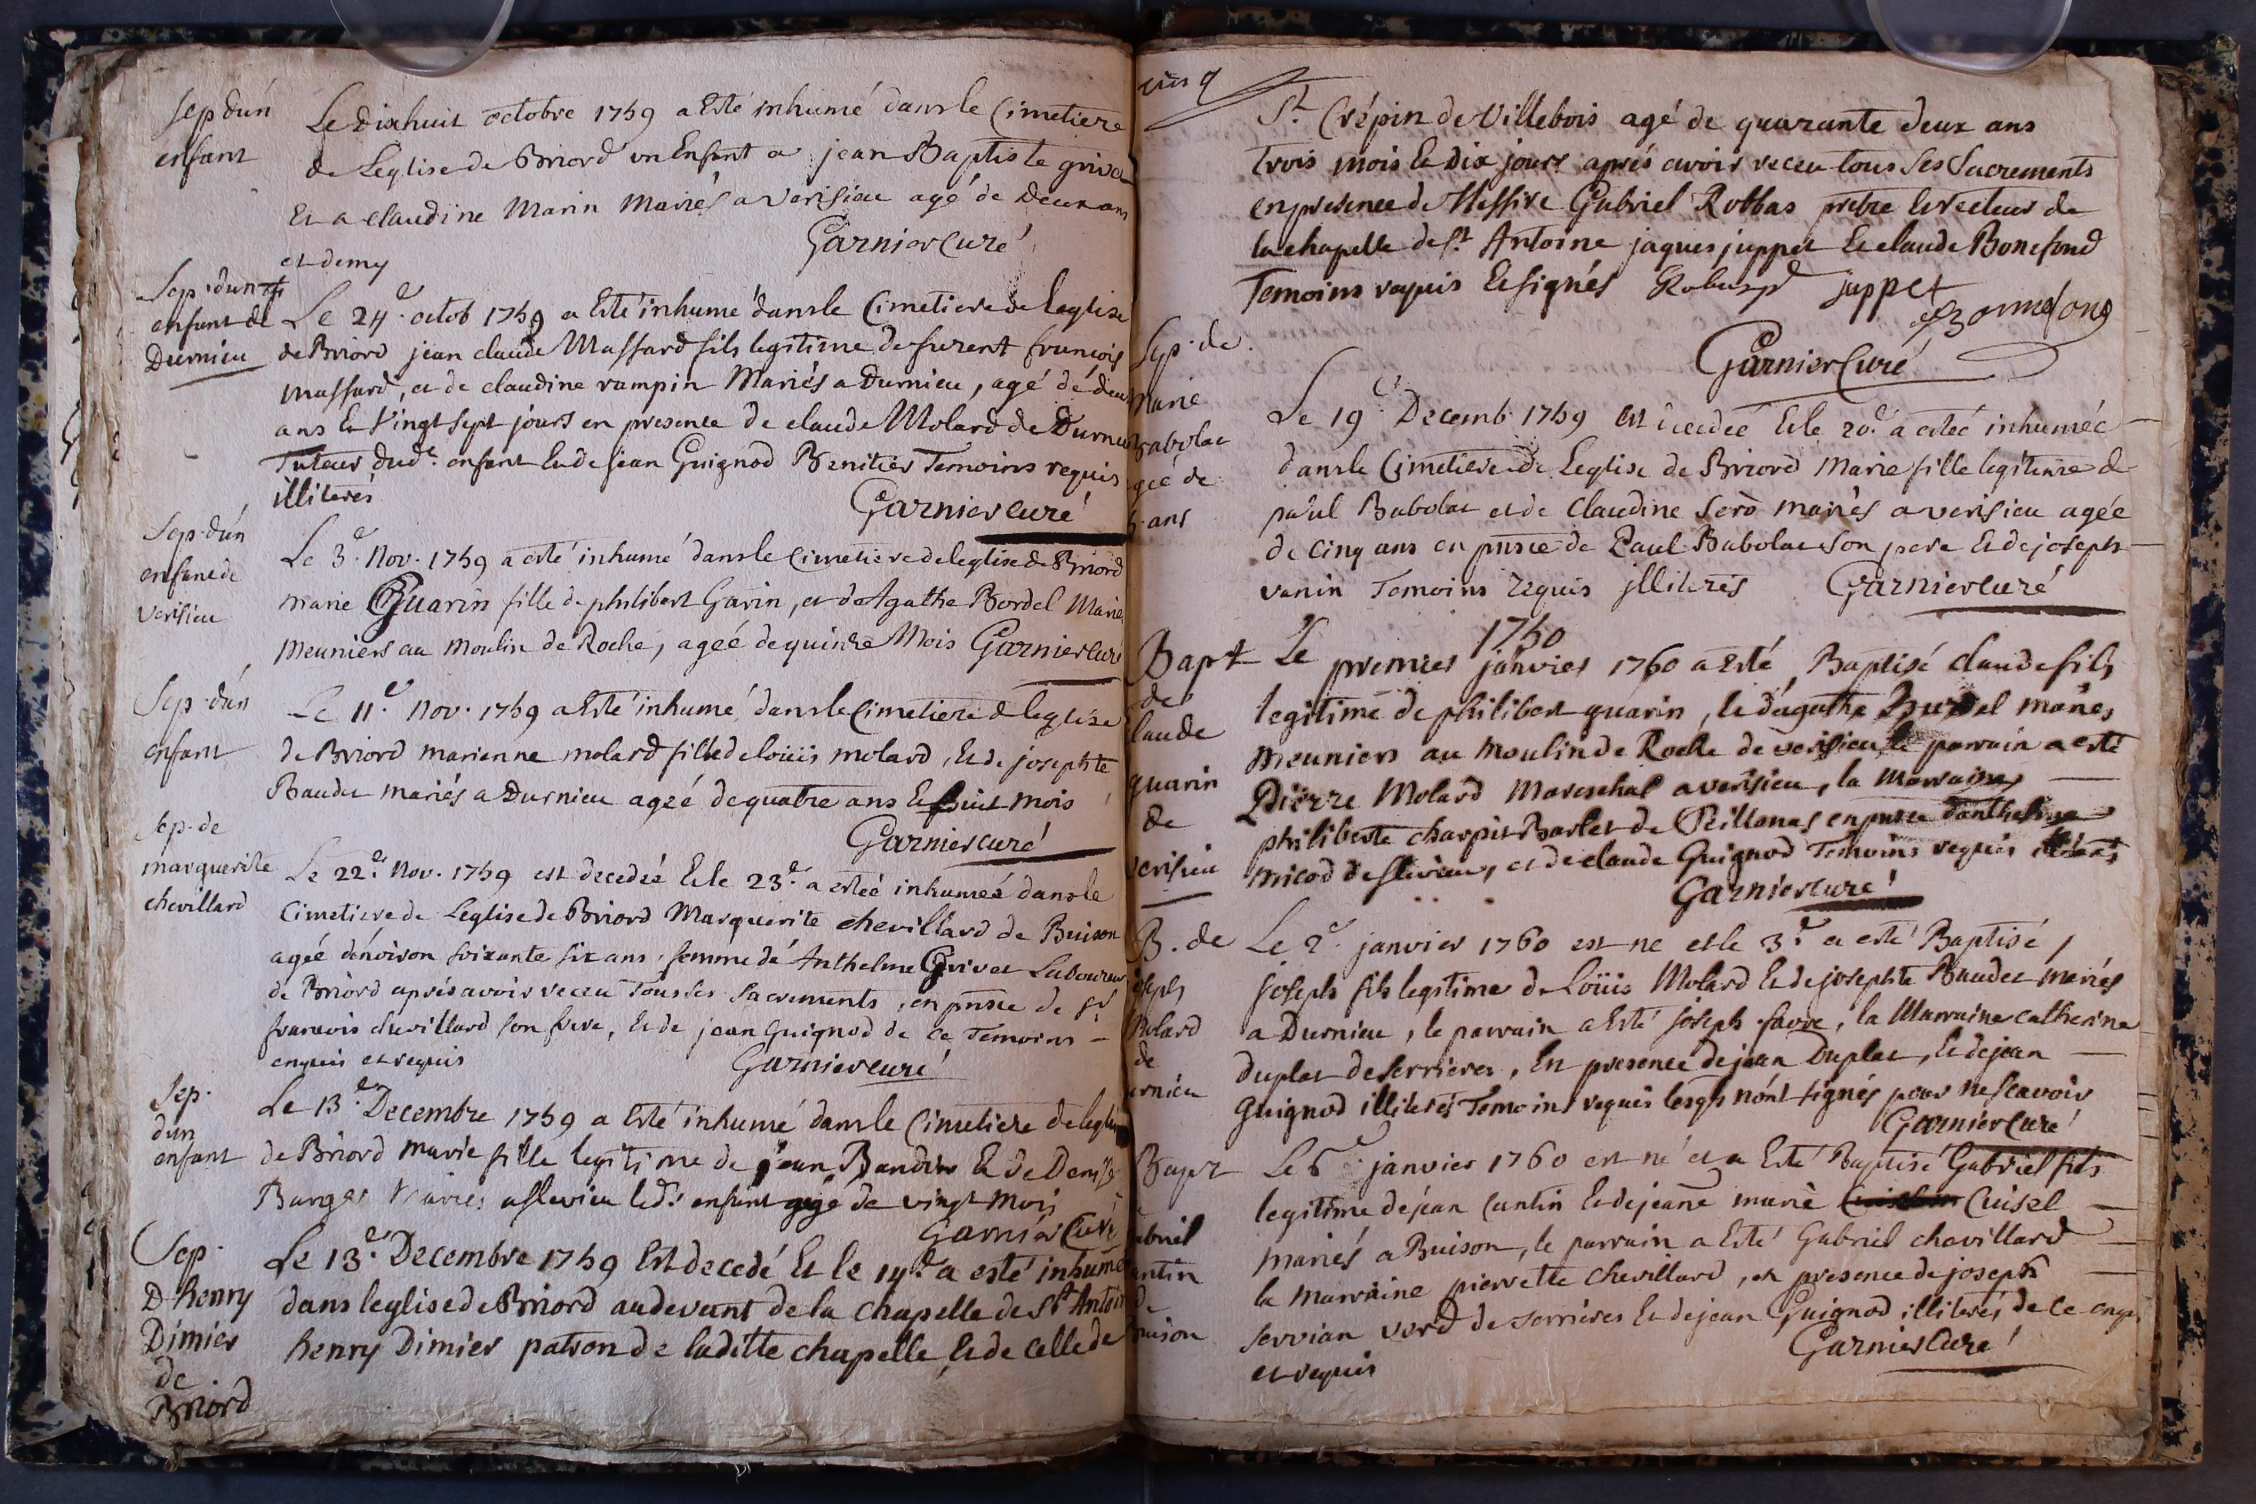 Sep dun
enfant
Le dixhuit octobre 1759 a Esté inhumé dans le Cimetiere
de Leglise de Briord un Enfant a jean Baptiste grivat
Et a claudine Marin Mariés a verisieu agé de Deux ans
et demy
Garnier Curé
Sep. dun
enfant de
Durnieu
Le 24e octob 1759 a Esté inhumé dans le Cimetiere de leglise
de Briord jean claude Massard fils legitime de furent francois
massard, et de claudine rampin Mariés a Durnieu, agé de deux
ans Et Vingt sept jours en presence de claude Molard de Durnieu
Tuteur dudt enfant Et de jean Guignod Benitier Temoins requis
illiterés
Garnier curé
Sep. dun
enfant de
verisieu
Le 3e Nov. 1759 a esté inhumé dans le Cimetiere de leglise de Briord
marie Guarin fille de philibert Garin, et de Agathe Bordel Marie
Meuniers au moulin de Roche, ageé de quinze Mois Garnier curé
Sep. dun
enfant
Le 11e Nov. 1759 a Esté inhumé dans le Cimetiere de leglise
de Briord marienne molard fille de loüis molard, Et de josephte
Baudet mariés a Durnieu ageé de quatre ans Et huit mois
Garnier curé
Sep. de
marguerite
chevillard
Le 22e Nov. 1759 est decedeé Et le 23e a esteé inhumeé dans le
Cimetiere de Leglise de Briord Marguerite chevillard de Buison
ageé d'environ soixante six ans, femme de Anthelme Grivat Laboureur
de Briord aprés avoir receu Tous ses Sacrements, en pnsce de Sr
francois chevillard son frere, Et de jean Guignod de ce Temoins
enquis et requis
Garnier curé
Sep.
dun
enfant
Le 13e Decembre 1759 a Esté inhumé dans le Cimetiere de leglise
de Briord marie fille legitime de jean Et de Denise
Mariés a flevieu ledt enfant agé de vingt Mois
Garnier Curé
Sep.
D henry
Dimier
de
Briord
Le 13e Decembre 1759 Est decedé Et le 14e a esté inhumé
dans leglise de Briord au devant de la chapelle de St Antoine
henry Dimier patron de laditte chapelle, Et de celle de
St Crépin de Villebois agé de quarante deux ans
trois mois Et Dix jours aprés avoir receu tous ses Sacrements
en presence de Messire Gabriel Robbas prebre Et recteur de
la chapelle de St Antoine jaques juppet Et claude Bonefond
Temoins requis Et signés juppet
Bonnefond
Garnier Curé
Sep. de
Marie
Babolat
geé de
5 ans
Le 19e Decemb 1759 est decedeé Et le 20e a esteé inhumeé
dans le Cimetiere de Leglise de Briord Marie fille legitime de
paul Babolat et de Claudine Serò mariés a verisieu ageé
de cinq ans en pnsce de Paul Babolat son pere Et de joseph
vanin Temoins requis illiterés Garnier curé
1760
Bapt
de
laude
guarin
de
verisieu
Le premier janvier 1760 a Esté Baptisé claude fils
legitime de philibert guarin, Et d'agathe Burdel mariés
meuniers au moulin de Roche de verisieu, le parrain a esté
Pierre Molard Mareschal a verisieu, la Marraine
philiberte charpit Barlet de Peillonas en pnsce danthelme
micod de flevieu, et de claude Guignod Temoins requis illiterés
Garnier curé
B. de
oseph
Molard
de
urnieu
Le 2e janvier 1760 est ne et le 3e a esté Baptisé
joseph fils legitime de Loüis Molard Et de josephte Baudet mariés
a Durnieu, le parrain a Esté joseph favre, la Marraine catherine
duplat de serrieres, En presence de jean Duplat, Et de jean
Guignod illiterés Temoins requis lesqls n'ont signés pour ne scavoir
Garnier Curé
Bapt
abriel
antin
de
uison
Le 6e janvier 1760 est né et a Esté Baptisé Gabriel fils
legitime de jean Cantin Et de jeane marie Cuisel
mariés a Buison, le parrain a Esté Gabriel chevillard
la marraine pierrette chevillard, en presence de joseph
servian verd de serrieres Et de jean Guignod illiterés de ce enqs
et requis
Garnier Curé